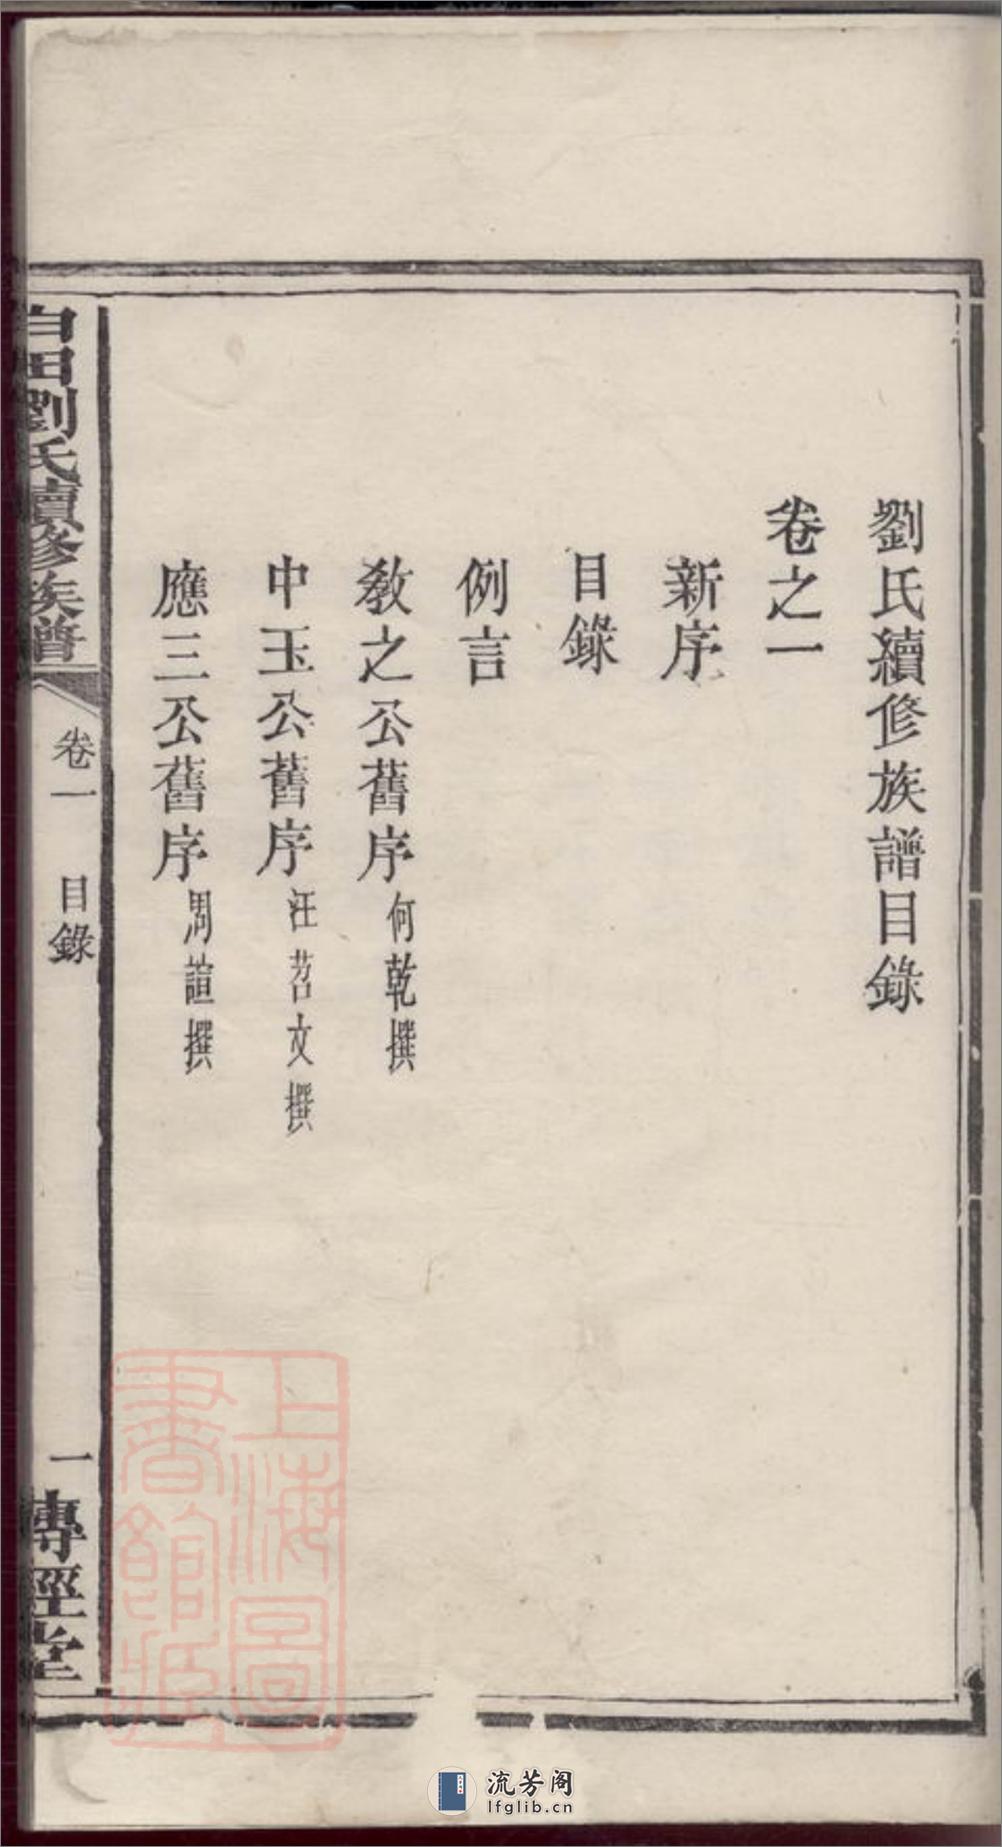 劉氏續修族譜目錄
卷之一
新序
目錄
例言
敎之公舊序 何乾撰
中玉公舊序 汪苕文撰
應三公舊序 周諠撰
白田劉氏續修族譜
卷一 目錄
一
傳經堂
上海圖書館藏
流芳阁
lfglib.cn